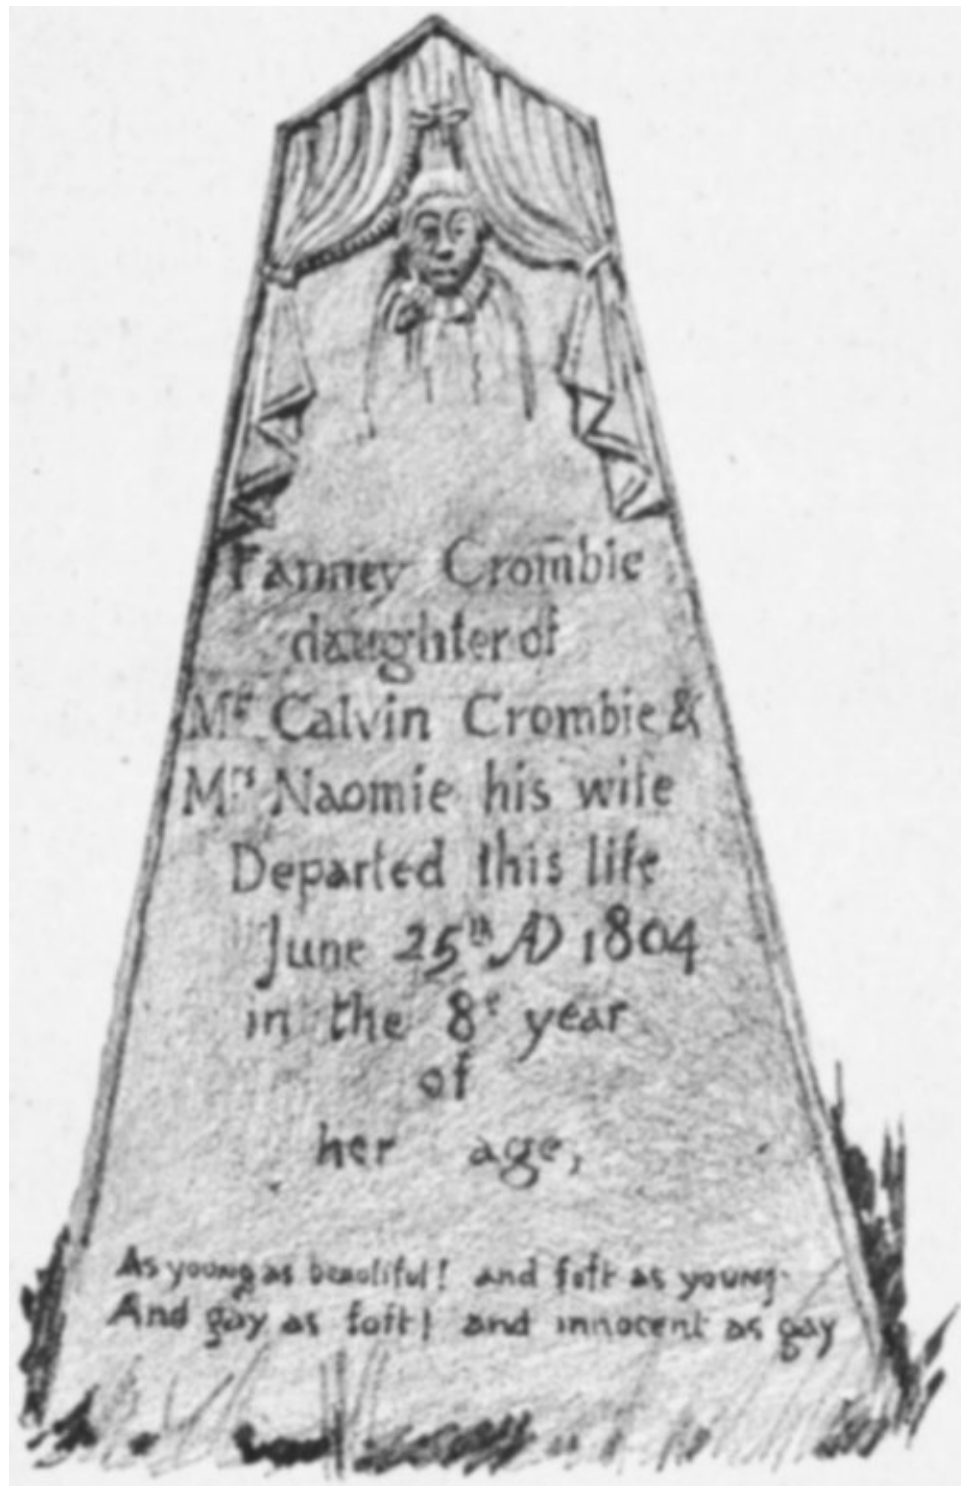 Fanney Crombie
daughter of
Mr Calvin Crombie &
Mrs Naomie his wife
Departed this life
June 25th AD 1804
in the 8t year
of
her age,
As young as beautiful! and ſoft as young
And gay as ſoft! and innocent as gay